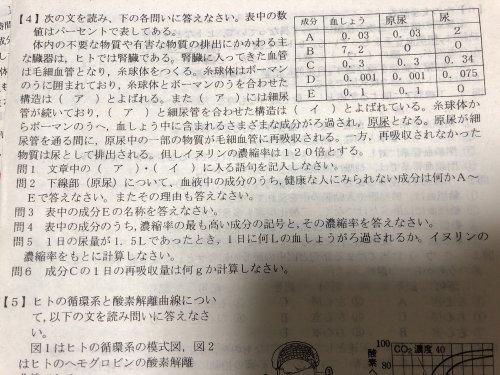 【4】次の文を読み、下の各問いに答えなさい。表中の数
値はパーセントで表してある。
体内の不要な物質や有害な物質の排出にかかわる主
な臓器は、ヒトでは腎臓である。腎臓に入ってきた血管
は毛細血管となり、糸球体をつくる。糸球体はボーマン
のうに囲まれており、糸球体とボーマンのうを合わせた
構造は（ ア ）とよばれる。また（ ア ）には細尿
管が続いており、（ ア ）と細尿管を合わせた構造は（ イ ）とよばれている。糸球体か
らボーマンのうへ、血しょう中に含まれるさまざまな成分がろ過され、原尿となる。原尿が細
尿管を通る間に、原尿中の一部の物質が毛細血管に再吸収される。一方、再吸収されなかった
物質は尿として排出される。但しイヌリンの濃縮率は１２０倍とする。
成分 血しょう 原尿 尿
A 0.03 0.03 2
B 7.2 0 0
C 0.3 0.3 0.34
D 0.001 0.001 0.075
E 0.1 0.1 0
問１ 文章中の（ ア ）・（ イ ）に入る語句を記入しなさい。
問２ 下線部（原尿）について、血液中の成分のうち、健康な人にみられない成分は何かＡ～
Ｅで答えなさい。またその理由も答えなさい。
問３ 表中の成分Ｅの名称を答えなさい。
問４ 表中の成分のうち、濃縮率の最も高い成分の記号と、その濃縮率を答えなさい。
問５ １日の尿量が1.5Lであったとき、１日に何Lの血しょうがろ過されるか。イヌリンの
濃縮率をもとに計算しなさい。
問６ 成分Ｃの１日の再吸収量は何ｇか計算しなさい。
【5】ヒトの循環系と酸素解離曲線につい
て、以下の文を読み問いに答えなさ
い。
図１はヒトの循環系の模式図、図２
はヒトのヘモグロビンの酸素解離
100
80
酸素ヘ
CO₂濃度 40